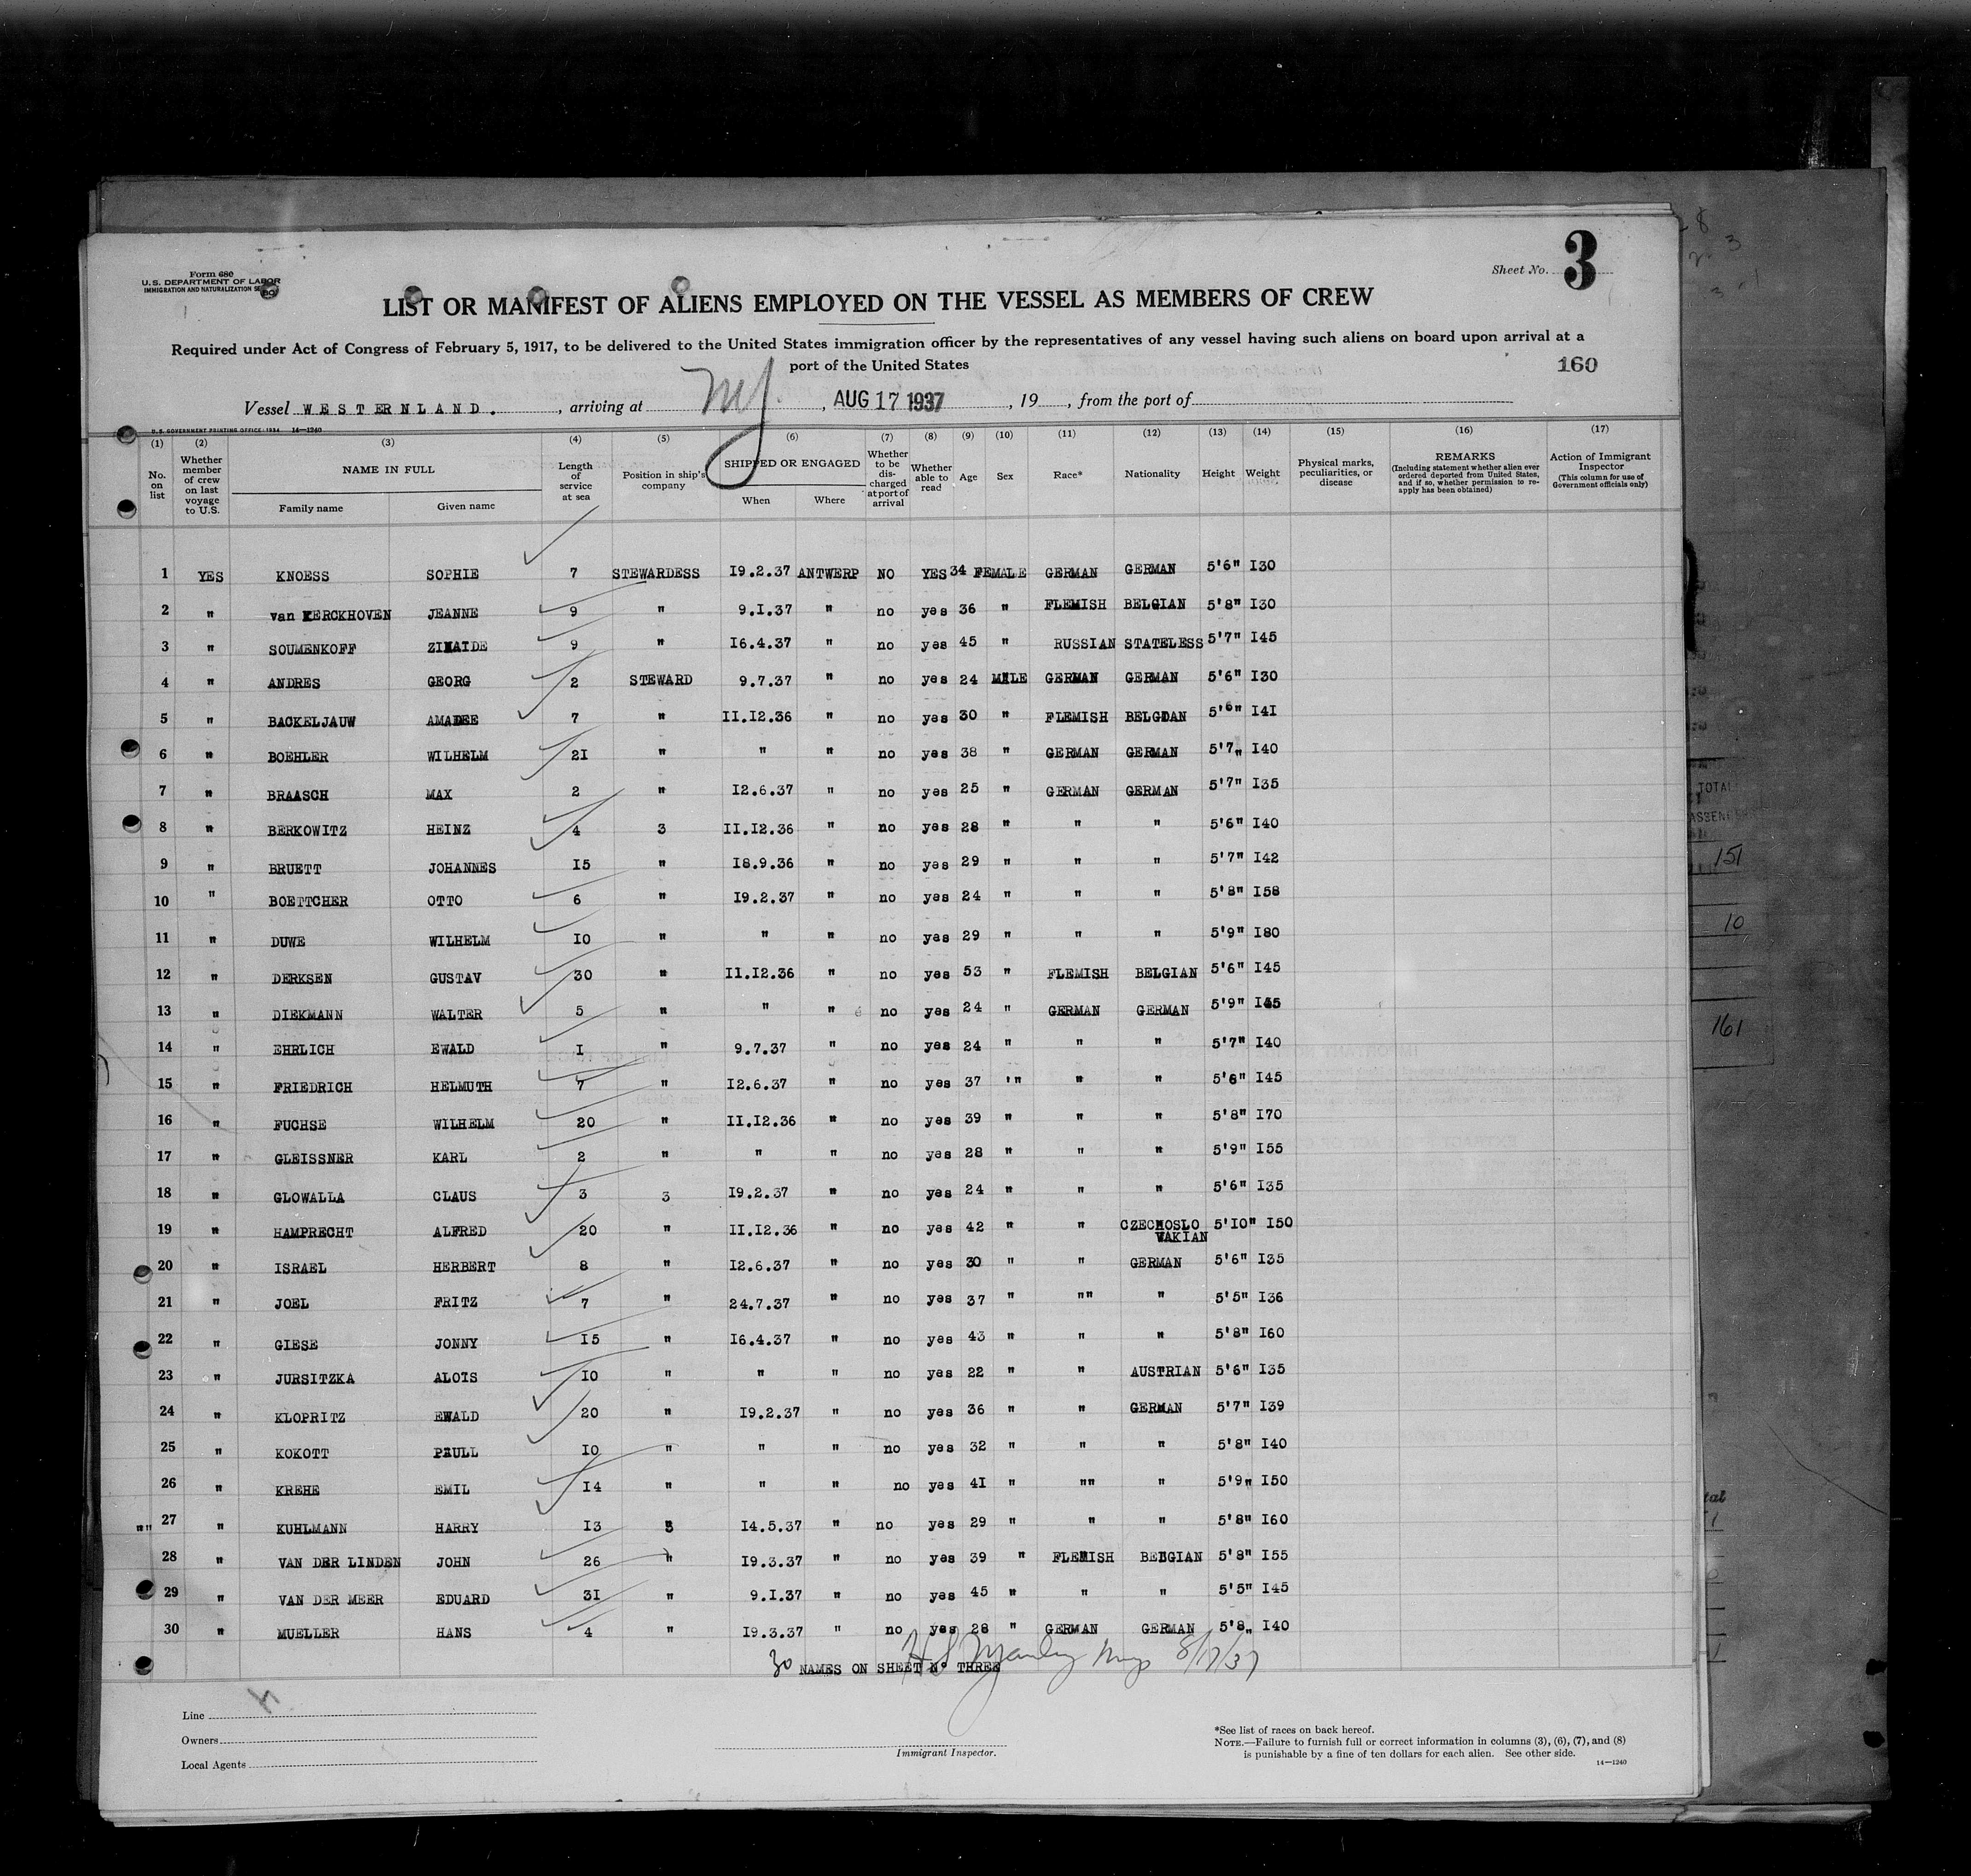 Form 680
U.S. DEPARTMENT OF LABOR
IMMIGRATION AND NATURALIZATION
Sheet No. 3
LIST OR MANIFEST OF ALIENS EMPLOYED ON THE VESSEL AS MEMBERS OF CREW
Required under Act of Congress of February 5, 1917, to be delivered to the United States immigration officer by the representatives of any vessel having such aliens on board upon arrival at a
port of the United States
160
Vessel WESTERNLAND. , arriving at NY , AUG 17 1937 , 19 , from the port of
U.S. GOVERNMENT PRINTING OFFICE: 1934 14—1240
(1) (2) (3) (4) (5) (6) (7) (8) (9) (10) (11) (12) (13) (14) (15) (16) (17)
No. on list
Whether member of crew on last voyage to U.S.
NAME IN FULL
Family name Given name
Length of service at sea
Position in ship's company
SHIPPED OR ENGAGED
When Where
Whether to be discharged at port of arrival
Whether able to read
Age
Sex
Race*
Nationality
Height
Weight
Physical marks, peculiarities, or disease
REMARKS
(Including statement whether alien ever ordered deported from United States, and if so, whether permission to reapply has been obtained)
Action of Immigrant Inspector
(This column for use of Government officials only)
1 YES KNOESS SOPHIE 7 STEWARDESS I9.2.37 ANTWERP NO YES 34 FEMALE GERMAN GERMAN 5'6" I30
2 " van KERCKHOVEN JEANNE 9 " 9.I.37 " no yes 36 " FLEMISH BELGIAN 5'8" I30
3 " SOUMENKOFF ZINAIDE 9 " I6.4.37 " no yes 45 " RUSSIAN STATELESS 5'7" I45
4 " ANDRES GEORG 2 STEWARD 9.7.37 " no yes 24 MALE GERMAN GERMAN 5'6" I30
5 " BACKELJAUW AMADEE 7 " II.I2.36 " no yes 30 " FLEMISH BELGIAN 5'6" I4I
6 " BOEHLER WILHELM 2I " " " no yes 38 " GERMAN GERMAN 5'7" I40
7 " BRAASCH MAX 2 " I2.6.37 " no yes 25 " GERMAN GERMAN 5'7" I35
8 " BERKOWITZ HEINZ 4 3 II.I2.36 " no yes 28 " " " 5'6" I40
9 " BRUETT JOHANNES I5 " I8.9.36 " no yes 29 " " " 5'7" I42
10 " BOETTCHER OTTO 6 " I9.2.37 " no yes 24 " " " 5'8" I58
11 " DUWE WILHELM IO " " " no yes 29 " " " 5'9" I80
12 " DERKSEN GUSTAV 30 " II.I2.36 " no yes 53 " FLEMISH BELGIAN 5'6" I45
13 " DIEKMANN WALTER 5 " " " no yes 24 " GERMAN GERMAN 5'9"
14 " EHRLICH EWALD I " 9.7.37 " no yes 24 " " " 5'7" I40
15 " FRIEDRICH HELMUTH 7 " I2.6.37 " no yes 37 '" " " 5'6" I45
16 " FUCHSE WILHELM 20 " II.I2.36 " no yes 39 " " " 5'8" I70
17 " GLEISSNER KARL 2 " " " no yes 28 " " " 5'9" I55
18 " GLOWALLA CLAUS 3 3 I9.2.37 " no yes 24 " " " 5'6" I35
19 " HAMPRECHT ALFRED 20 " II.I2.36 " no yes 42 " " CZECHOSLO 5'IO" I50
WAKIAN
20 " ISRAEL HERBERT 8 " I2.6.37 " no yes 30 " " GERMAN 5'6" I35
21 " JOEL FRITZ 7 " 24.7.37 " no yes 37 " "" " 5'5" I36
22 " GIESE JONNY I5 " I6.4.37 " no yes 43 " " " 5'8" I60
23 " JURSITZKA ALOIS IO " " " no yes 22 " " AUSTRIAN 5'6" I35
24 " KLOPRITZ EWALD 20 " I9.2.37 " no yes 36 " " GERMAN 5'7" I39
25 " KOKOTT PAULL IO " " " no yes 32 " " " 5'8" I40
26 " KREHE EMIL I4 " " " no yes 4I " "" " 5'9" I50
"" 27 " KUHLMANN HARRY I3 3 I4.5.37 " no yes 29 " " " 5'8" I60
28 " VAN DER LINDEN JOHN 26 " I9.3.37 " no yes 39 " FLEMISH BELGIAN 5'8" I55
29 " VAN DER MEER EDUARD 3I " 9.I.37 " no yes 45 " " " 5'5" I45
30 " MUELLER HANS 4 " I9.3.37 " no yes 28 " GERMAN GERMAN 5'8" I40
30 NAMES ON SHEET No THREE 8/17/37
Line
Owners
Local Agents
Immigrant Inspector.
*See list of races on back hereof.
NOTE.—Failure to furnish full or correct information in columns (3), (6), (7), and (8)
is punishable by a fine of ten dollars for each alien. See other side.
14—1240
TOTAL
151
10
161